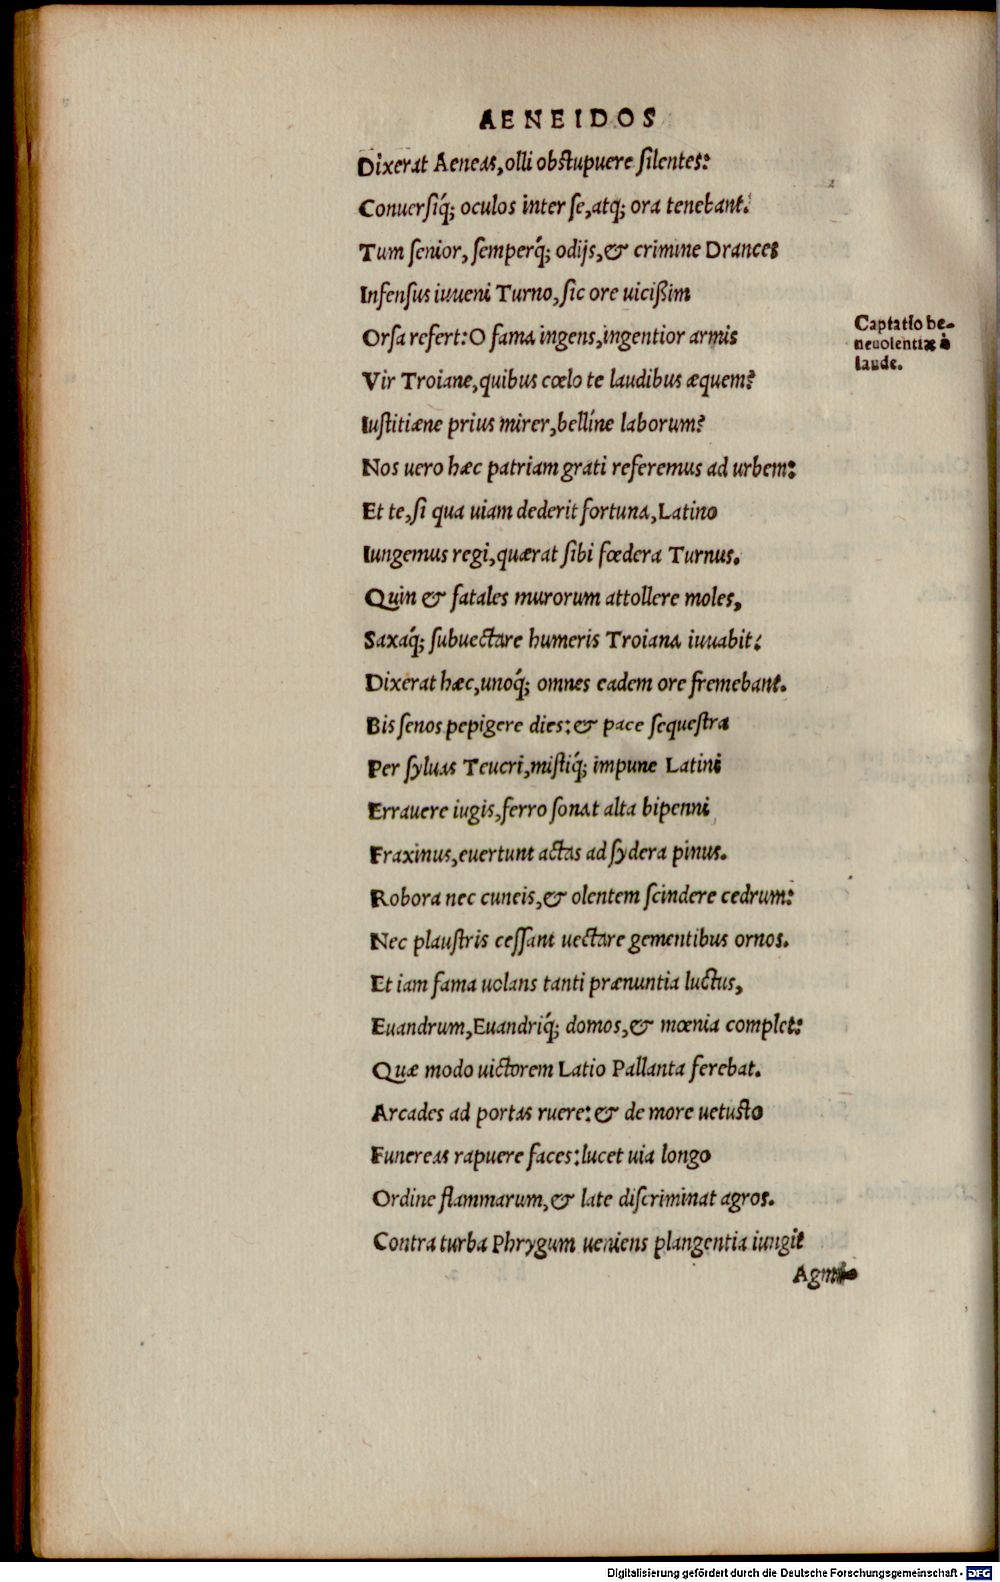 AENEIDOS
Dixerat Aeneas, olli obstupuere silentes:
Conuersiq́; oculos inter se, atq́; ora tenebant.
Tum senior, semperq́; odijs, & crimine Drances
Infensus iuueni Turno, sic ore uicißim
Orsa refert: O fama ingens, ingentior armis
Captatio be-
neuolentiæ à
laude.
Vir Troiane, quibus cœlo te laudibus æquem?
Iustitiæne prius mirer, bellíne laborum?
Nos uero hæc patriam grati referemus ad urbem:
Et te, si qua uiam dederit fortuna, Latino
Iungemus regi, quærat sibi fœdera Turnus.
Quin & fatales murorum attollere moles,
Saxaq́; subuectare humeris Troiana iuuabit.
Dixerat hæc, unoq́; omnes eadem ore fremebant.
Bis senos pepigere dies: & pace sequestra
Per syluas Teucri, mistiq́; impune Latini
Errauere iugis, ferro sonat alta bipenni
Fraxinus, euertunt actas ad sydera pinus.
Robora nec cuneis, & olentem scindere cedrum:
Nec plaustris cessant uectare gementibus ornos.
Et iam fama uolans tanti prænuntia luctus,
Euandrum, Euandriq́; domos, & mœnia complet:
Quæ modo uictorem Latio Pallanta ferebat.
Arcades ad portas ruere: & de more uetusto
Funereas rapuere faces: lucet uia longo
Ordine flammarum, & late discriminat agros.
Contra turba Phrygum ueniens plangentia iungit
Digitalisierung gefördert durch die Deutsche Forschungsgemeinschaft - DFG